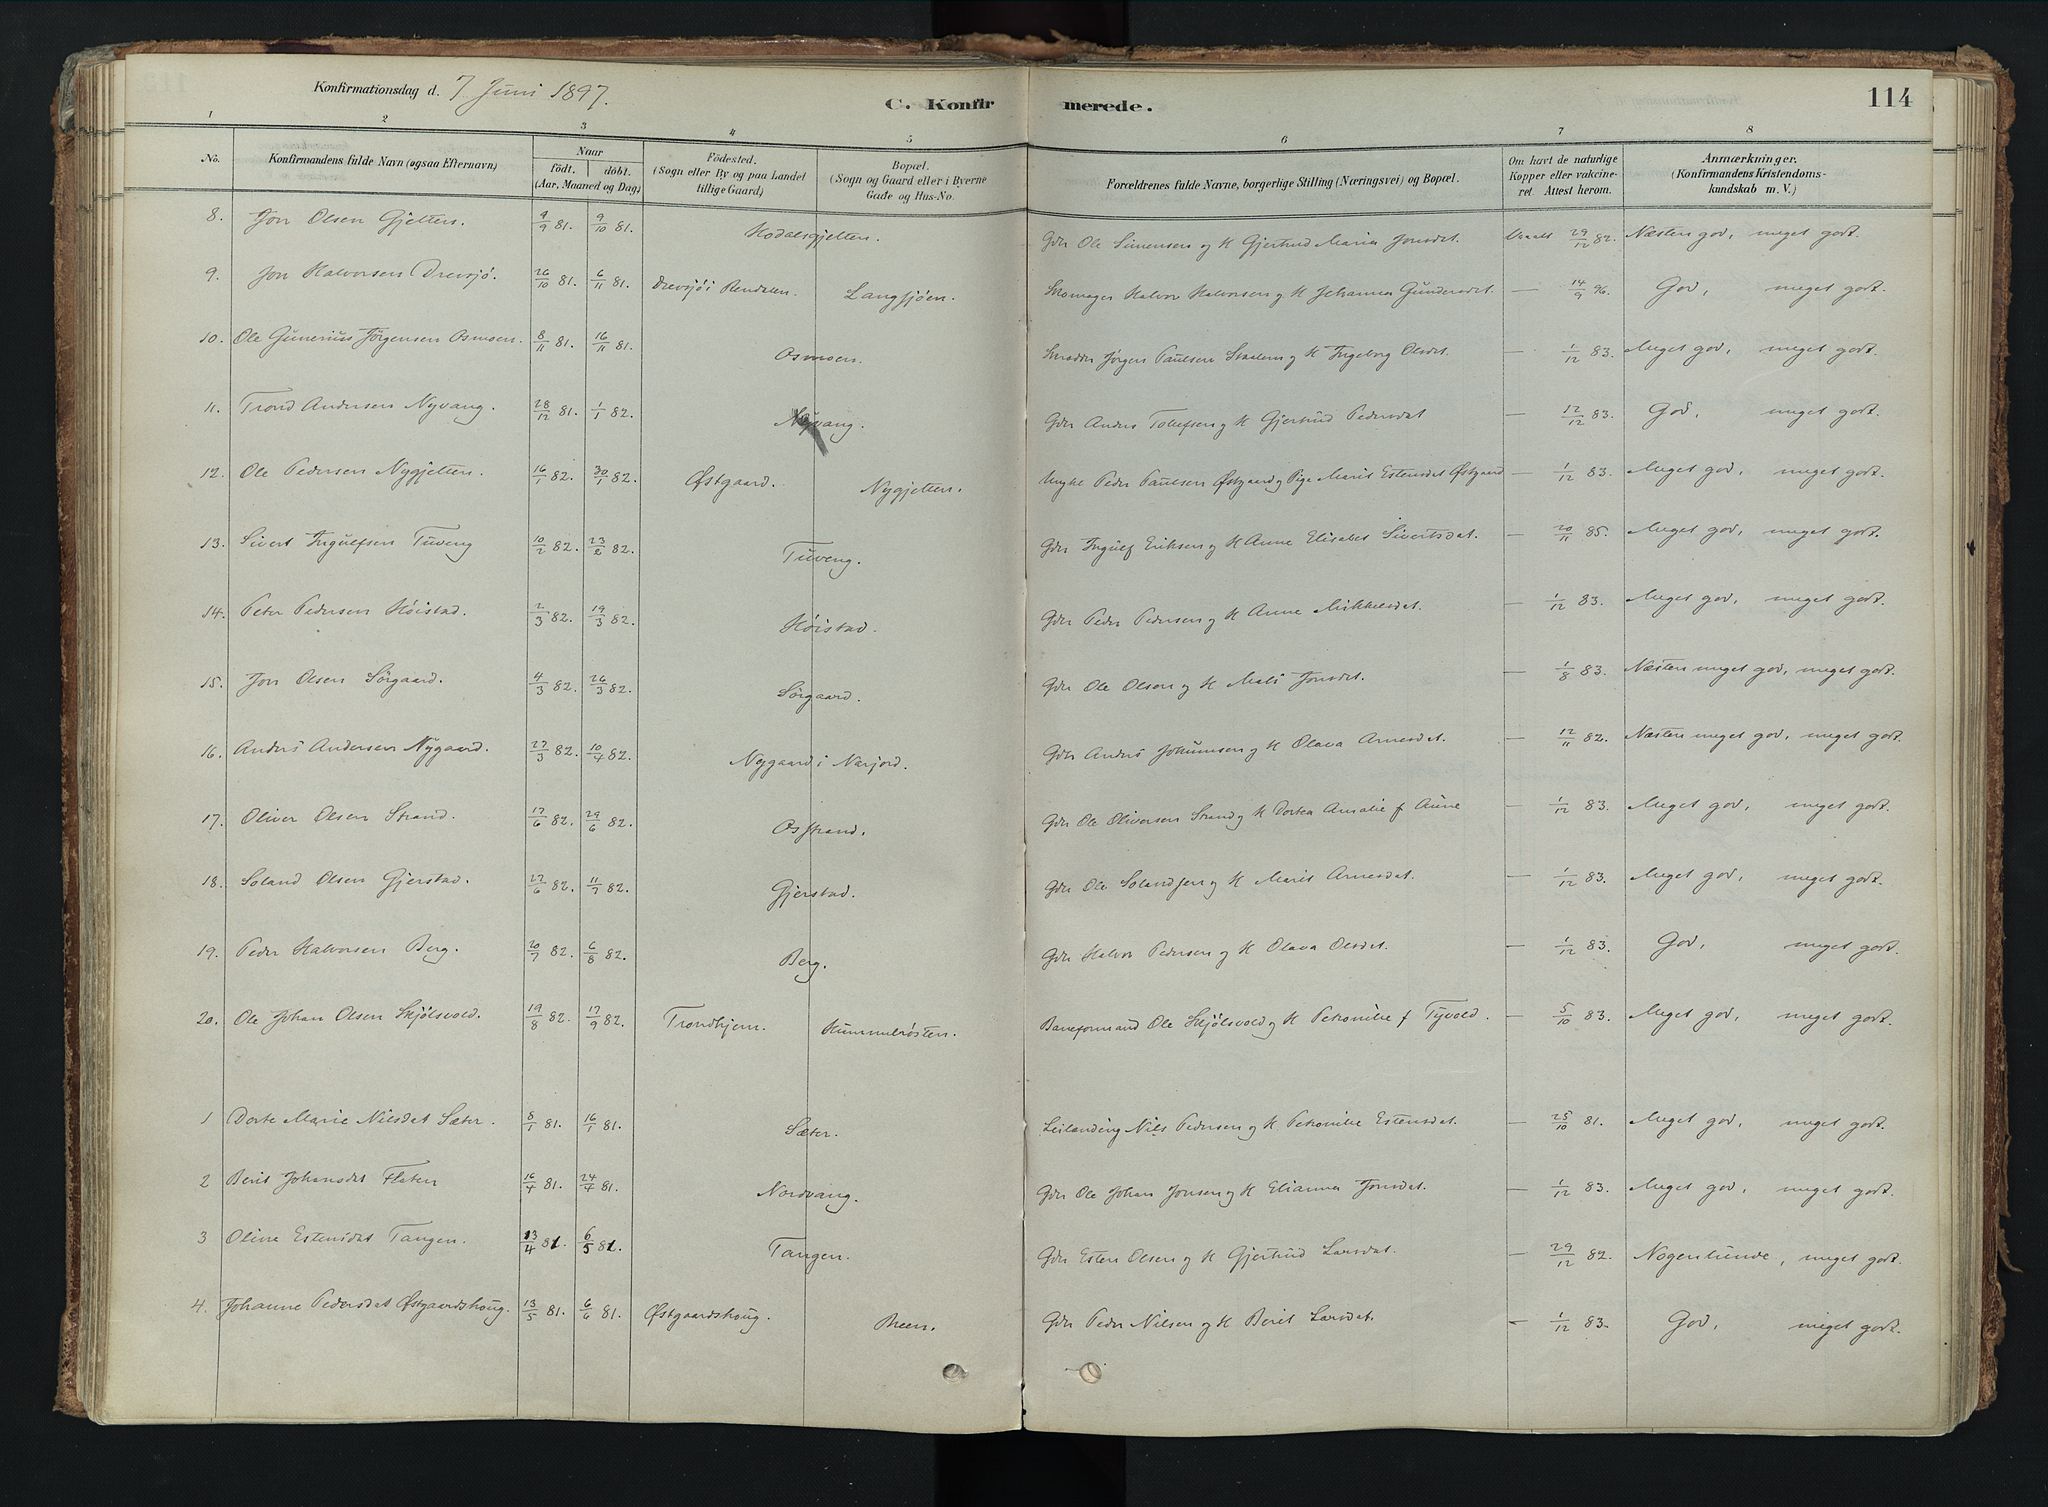 Konfirmationsdag d. 7 Juni 1897.
C. Konfirmerede.
114
1 2 3 4 5 6 7 8
No. Konfirmandens fulde Navn (øgsaa Efternavn) Naar födt. döbt. (Aar, Maaned og Dag) Födested. (Sogn eller By og paa Landet tillige Gaard) Bopæl. (Sogn og Gaard eller i Byerne Gade og Hus-No. Forældrenes fulde Navne, borgerlige Stilling (Næringsvei) og Bopæl. Om havt de naturlige Kopper eller vakcineret. Attest herom. Anmærkninger. (Konfirmandens Kristendomskundskab m. V.)
8. Jon Olsen Gjelten. 9/9 81. 9/10 81. Hodalsgjelten. Gdr Ole Simensen og H Gjertrud Maria Jonsdat. 29/12 82. Næsten god, meget godt.
9. Jon Halvorsen Drevsjö. 26/10 81. 6/11 81. Drevsjö i Rendalen. Langsjöen. Skomager Halvor Halvorsen og H Johanna Gundersdat. — 14/9 96. God, meget godt.
10. Ole Gunerius Jörgensen Osmoen. 8/11 81. 16/11 81. Osmoen. Jörgen Paulsen og H Ingeborg Olsdat. — 1/12 83. Meget god, meget godt.
11. Trond Andersen Nyvang. 28/12 81. 1/1 82. Nyvang. Gdr Anders Tollefsen og H Gjertrud Pedersdat — 12/12 83. God, meget godt.
12. Ole Pedersen Nygjelten. 16/1 82. 30/1 82. Østgaard. Nygjelten. Ungk Peder Paulsen Østgaard og Pige Marit Estensdat Østgaard — 1/12 83. Meget god, meget godt.
13. Sivert Ingulfsen Tuveng 10/2 82. 23/2 82. Tuveng. Gdr Ingulf Eriksen og H Anne Elisabet Sivertsdat. — 20/11 85. Meget god, meget godt.
14. Peter Pedersen Höistad. 2/3 82. 19/3 82. Höistad. Gdr Peder Pedersen og H Anne Mikkelsdat. — 1/12 83. Meget god, meget godt.
15. Jon Olsen Sörgaard. 4/3 82. 26/3 82. Sörgaard. Gdr Ole Olsen og H Mali Jonsdat. — 1/8 83. Næsten meget god, meget godt.
16. Anders Andersen Nygaard. 27/3 82. 10/4 82. Nygaard i Narjord. Gdr Anders Johnnsen og H Olava Arnesdat. — 12/11 82. Næsten meget god, meget godt.
17. Oliver Olsen Strand. 17/6 82. 29/6 82. Osstrand. Gdr Ole Oliversen Strand og H Dortea Amalie f Aune — 1/12 83. Meget god, meget godt.
18. Soland Olsen Gjerstad. 27/6 82. 11/7 82. Gjerstad. Gdr Ole Solandsen og H Marit Arnesdat. — 1/12 83. Meget god, meget godt.
19. Peder Halvorsen Berg. 20/7 82. 6/8 82. Berg. Gdr Halvor Pedersen og H Olava Olsdat. — 1/12 83. God, meget godt.
20. Ole Johan Olsen Skjölsvold. 19/8 82. 17/9 82. Trondhjem. Hummelrösten. Baneformand Ole Skjölsvold og H Petronilie f Tyvold. — 5/10 83. Meget god, meget godt.
1 Dorte Marie Nilsdat Sæter. 8/1 81. 16/1 81. Sæter. Leilænding Nils Pedersen og H. Petronilie Estensdat. — 25/10 81. Meget god, meget godt.
2 Berit Johansdat Flaten 16/4 81. 24/4 81. Nordvang. Gdr Ole Johan Jonsen og H Elianna Jonsdat. — 1/12 83. Meget god, meget godt.
3 Oline Estensdat Tangen. 13/4 81. 6/5 81. Tangen. Gdr Esten Olsen og H Gjertrud Larsdat. — 29/12 82. Nogenlunde, meget godt.
4. Johanne Pedersdat Østgaardshoug. 13/5 81. 6/6 81. Østgaardshoug. Breen. Gdr Peder Nilsen og H Berit Larsdat. — 1/12 83. God, meget godt.